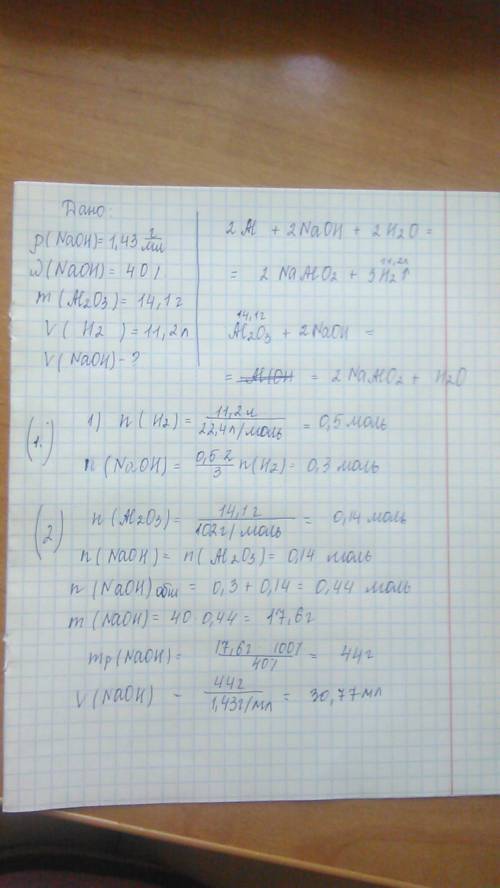 Дано:
ρ(NaOH) = 1,43 г/мл
ω(NaOH) = 40%
m(Al₂O₃) = 14,1 г
V(H₂) = 11,2 л
V(NaOH) - ?
2Al + 2NaOH + 2H₂O =
11,2л
= 2NaAlO₂ + 3H₂↑
14,1г
Al₂O₃ + 2NaOH =
= = 2NaAlO₂ + H₂O
(1.) 1) n(H₂) = 11,2 л / 22,4 л/моль = 0,5 моль
n(NaOH) = 0,5·2/3 n(H₂) = 0,3 моль
(2) n(Al₂O₃) = 14,1 г / 102 г/моль = 0,14 моль
n(NaOH) = n(Al₂O₃) = 0,14 моль
n(NaOH)общ = 0,3 + 0,14 = 0,44 моль
m(NaOH) = 40·0,44 = 17,6 г
mр(NaOH) = 17,6г 100% / 40% = 44 г
V(NaOH) - 44 г / 1,43 г/мл = 30,77 мл